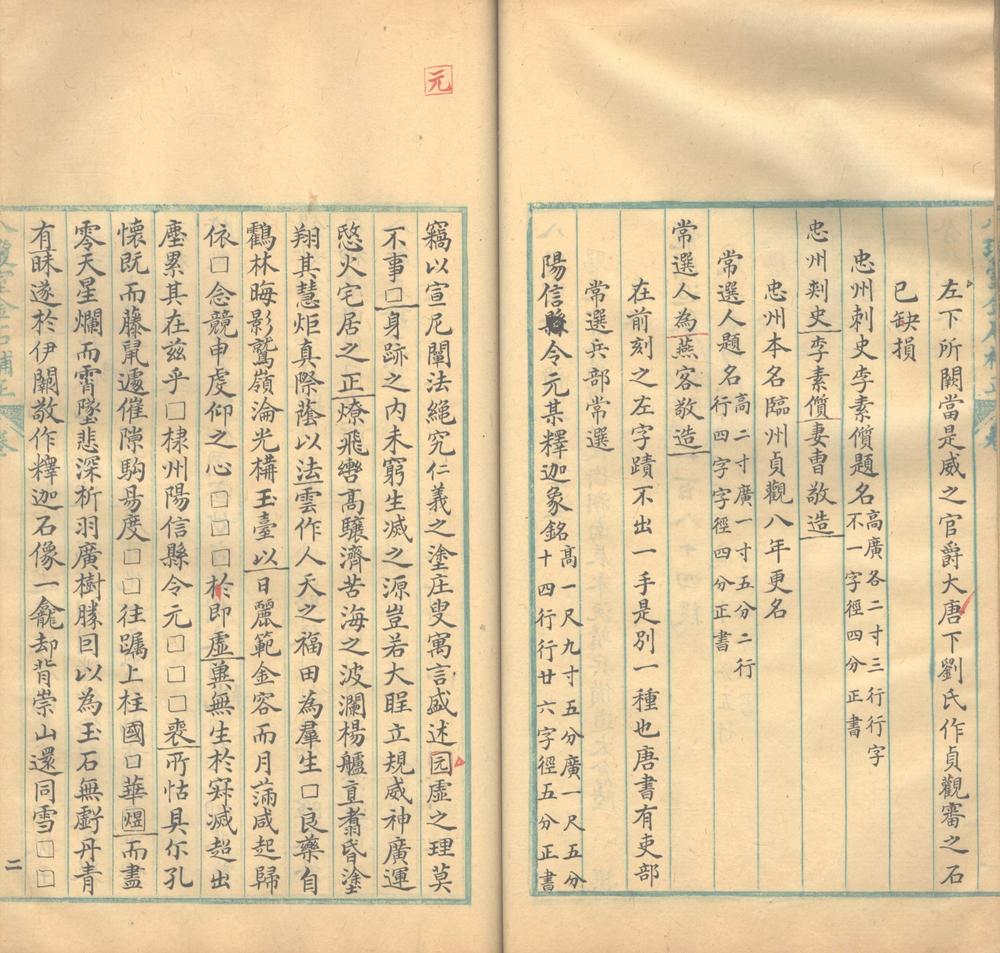 左下所闕當是威之官爵大唐下劉氏作貞觀審之石
已缺損
忠州刺史李素儨題名高廣各二寸三行行字不一字徑四分正書
忠州剌史李素儨妻曹敬造
忠州本名臨州貞觀八年更名
常選人題名高二寸廣一寸五分二行行四字字徑四分正書
常選人為燕容敬造
在前刻之左字蹟不出一手是別一種也唐書有吏部
常選兵部常選
陽信縣令元某釋迦象銘高一尺九寸五分廣一尺五分十四行行廿六字徑五分正書
元
竊以宣尼闡法絕究仁義之塗庄叟寓言盛述园虛之理莫
不事□身跡之內未窮生滅之源豈若大䀼立規威神廣運
愍火宅居之正燎飛轡高驤濟苦海之波瀾楊艫亶翥昏塗
翔其慧炬真際蔭以法雲作人天之福田為羣生□良藥自
鸖林晦影鷲嶺淪光構玉臺以日麗範金容而月滿咸起歸
依□念競申虔仰之心□□□於即虛兾無生於寂滅超出
塵累其在茲乎□棣州陽信縣令元□□□裵所怙具尓孔
懷既而藤鼠遽催隙駒昜度□□往矚上柱國□華煜而盡
零天星爛而霄墜悲深析羽廣樹勝囙以為玉石無虧丹青
有昧遂於伊闕敬作釋迦石像一龕却背崇山還同雪□□
二